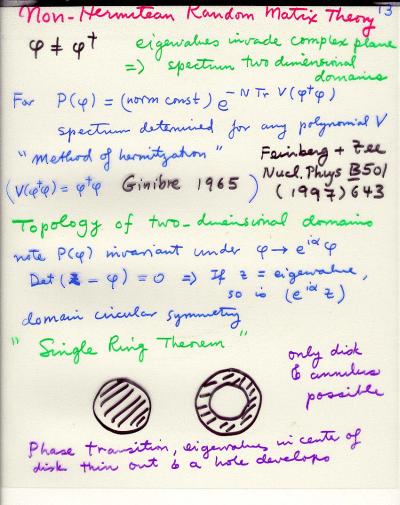 Non-Hermitean Random Matrix Theory 13
φ ≠ φ† eigenvalues invade complex plane
=> spectrum two dimensional
domains
For P(φ) = (norm const) e^{-N Tr V(φ†φ)}
spectrum determined for any polynomial V
"Method of hermitization" Feinberg + Zee
Nucl. Phys B501
(V(φ†φ) = φ†φ Ginibre 1965) (1997) 643
Topology of two-dimensional domains
note P(φ) invariant under φ → e^{iα} φ
Det (z - φ) = 0 => If z = eigenvalue,
so is (e^{iα} z)
domain circular symmetry
"Single Ring Theorem"
only disk
& annulus
possible
Phase transition, eigenvalues in center of
disk thin out & a hole develops